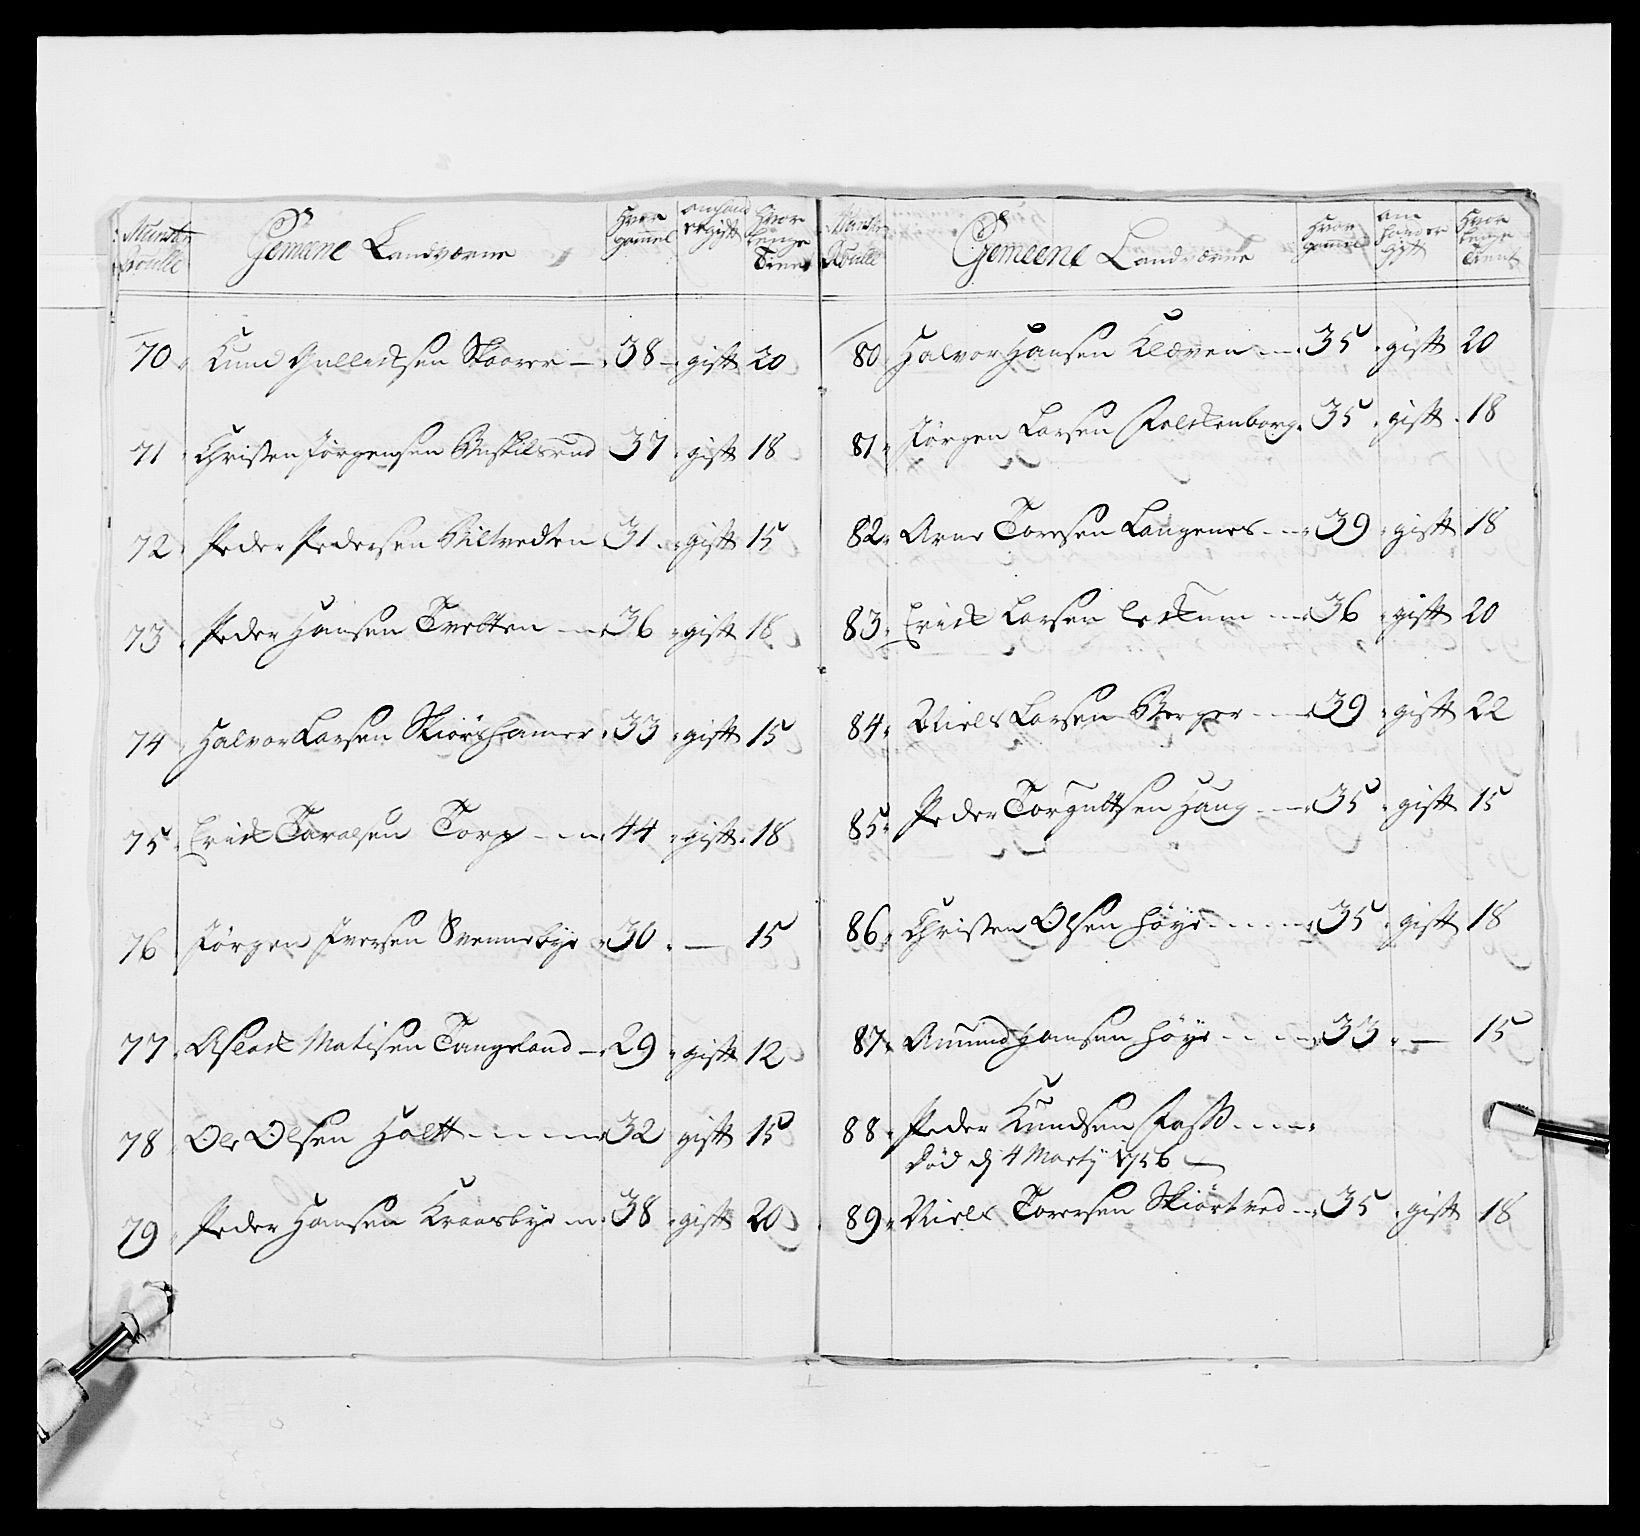 Munster Roulle Gemeene Landværne Hvor gammel om hand er gift Hvor lenge tient
70 Knud Gulleicksen Skaarer 38 gift 20
71 Christen Jørgensen Buskilsrud 37 gift 18
72 Peder Pedersen Biltvedten 31 gift 15
73 Peder Hansen Tvetten 36 gift 18
74 Halvor Larsen Skiørshamer 33 gift 15
75 Erick Taralsen Torp 44 gift 18
76 Jørgen Iversen Svennebye 30 — 15
77 Aslack Matisen Tangeland 29 gift 12
78 Ole Olsen Holtt 32 gift 15
79 Peder Hansen Kraasbye 38 gift 20
Munster Roulle Gemeene Landværne Hvor gammel om hand er gift Hvor lenge tient
80 Halvor Hansen Klæven 35 gift 20
81 Jørgen Larsen Falckenborg 35 gift 18
82 Arne Toresen Langenes 39 gift 18
83 Erick Larsen 36 gift 20
84 Niels Larsen Berger 39 gift 22
85 Peder Torgultsen Haug 35 gift 15
86 Christen Olsen Høye 35 gift 18
87 Amund Hansen Høye 33 — 15
88 Peder Knudsen Foss
død dj 4 Martij 1756
89 Niels Torersen Skiørtved 35 gift 18